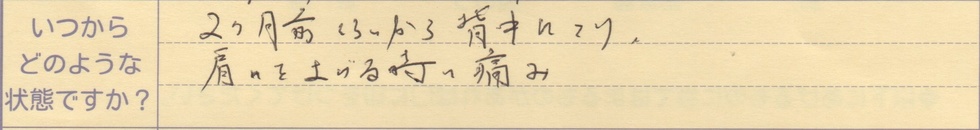 いつから
どのような
状態ですか？
2ヶ月前くらいから 背中にコリ、
肩 を上げる時に痛み